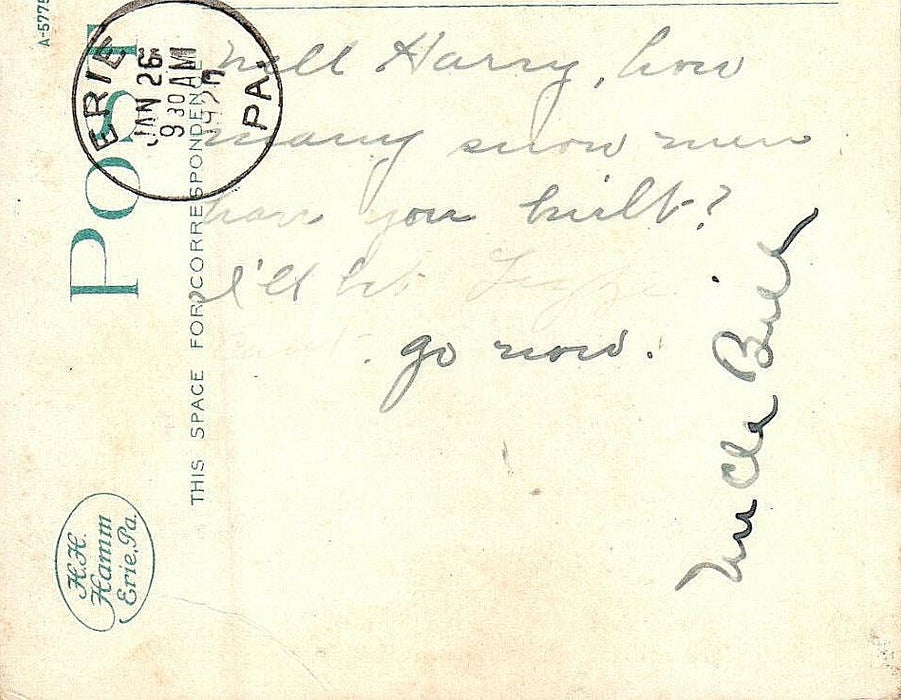 Well Harry, how
many snow men
have you built?
I'll bet
go now.
Uncle Bill
POST
THIS SPACE FOR CORRESPONDENCE
A-5775
ERIE PA.
JAN 26
9 30 AM
H.H.
Hamm
Erie, Pa.